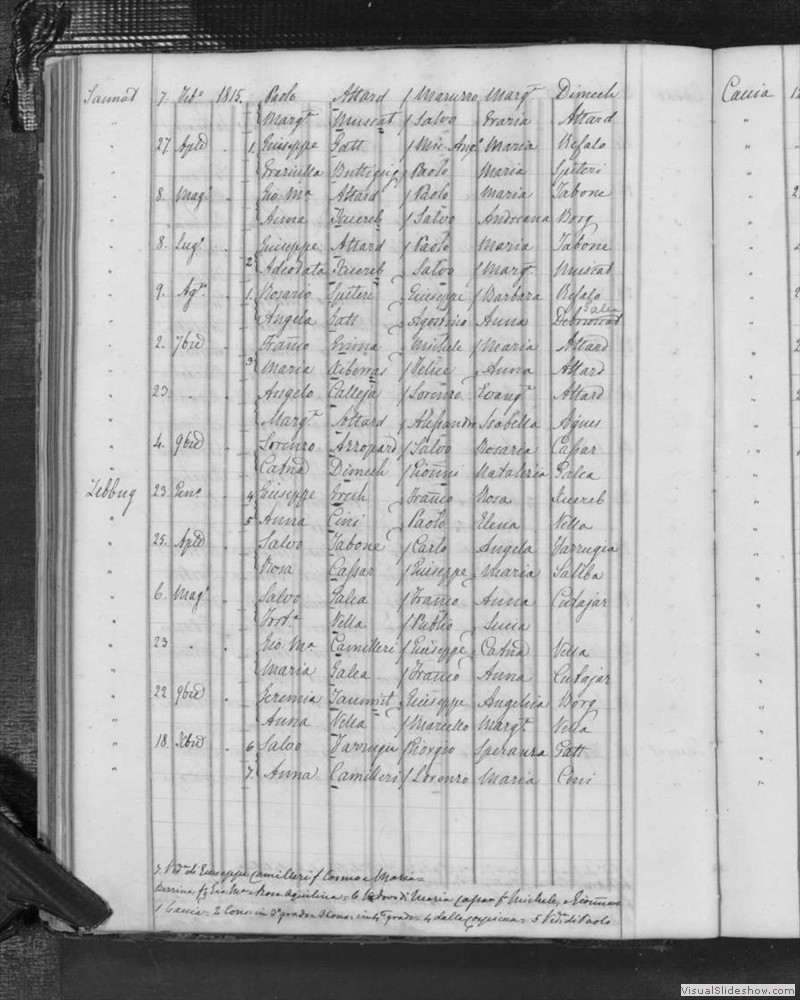 Sannat 7 Feb.o 1815. Paolo Attard f Maruzzo Marg.ta Dimech
" Marg.ta Muscat f Salvo Grazia Attard
" 27 Aple . 1 Giuseppe Gatt f Mic. Ang.o Maria Refalo
" Graziulla Buttigieg f Paolo Maria Spiteri
" 8 Mag.o . Gio. Ma. Attard f Paolo Maria Tabone
" Anna Xuereb f Salvo Andreana Borg
" 8 Lug.o . Giuseppe Attard f Paolo Maria Tabone
" 2 Adeodata Xuereb Salvo f Marg.ta Muscat
" 9. Ag.to . 1. Rosario Spiteri Giuseppe f Barbara Refalo
" Angela Gatt f Agostino Anna Debrincat Galea
" 2. 7bre . Franco Grima f Michele f Maria Attard
" 3 Maria Xiberras f Felice Anna Attard
" 23. " . Angelo Calleja f Lorenzo Evang.ta Attard
" Marg.ta Attard f Alessandro Isabella Agius
" 4. 9bre . Lorenzo Azzopard f Salvo Rosaria Cassar
" Catna Dimech f Gionni Nataleria Galea
Zebbug 23 Gen.o . 4 Giuseppe Grech f Franco Rosa Xuereb
" 5 Anna Cini Paolo Elena Vella
" 25. Aple . Salvo Tabone f Carlo Angela Farrugia
" Rosa Cassar f Giuseppe Maria Saliba
" 6. Mag.o . Salvo Galea f Franco Anna Cutajar
" Vella f Publio Lucia
" 23 " . Gio. Ma. Camilleri f Giuseppe Catna Vella
" Maria Galea f Franco Anna Cutajar
" 22 9bre . Geremia Giuseppe Angelica Borg
" Anna Vella f Marcello Marg.ta Vella
" 18. Xbre . 6 Salvo Farrugia f Giorgio Speranza Gatt
" 7. Anna Camilleri f Lorenzo Maria Cini
7. Ved.a di Giuseppe Camilleri f Cosmo e Maria =
f Gio. Ma. e Rosa Aquilina = 6 Vedovo di Maria Cassar f Michele, e
1 Caccia = 2 Cons: in 3° grado = 3 Cons: in 4° grado = 4 dalla = 5 Vid. di Paolo
Caccia
VisualSlideshow.com